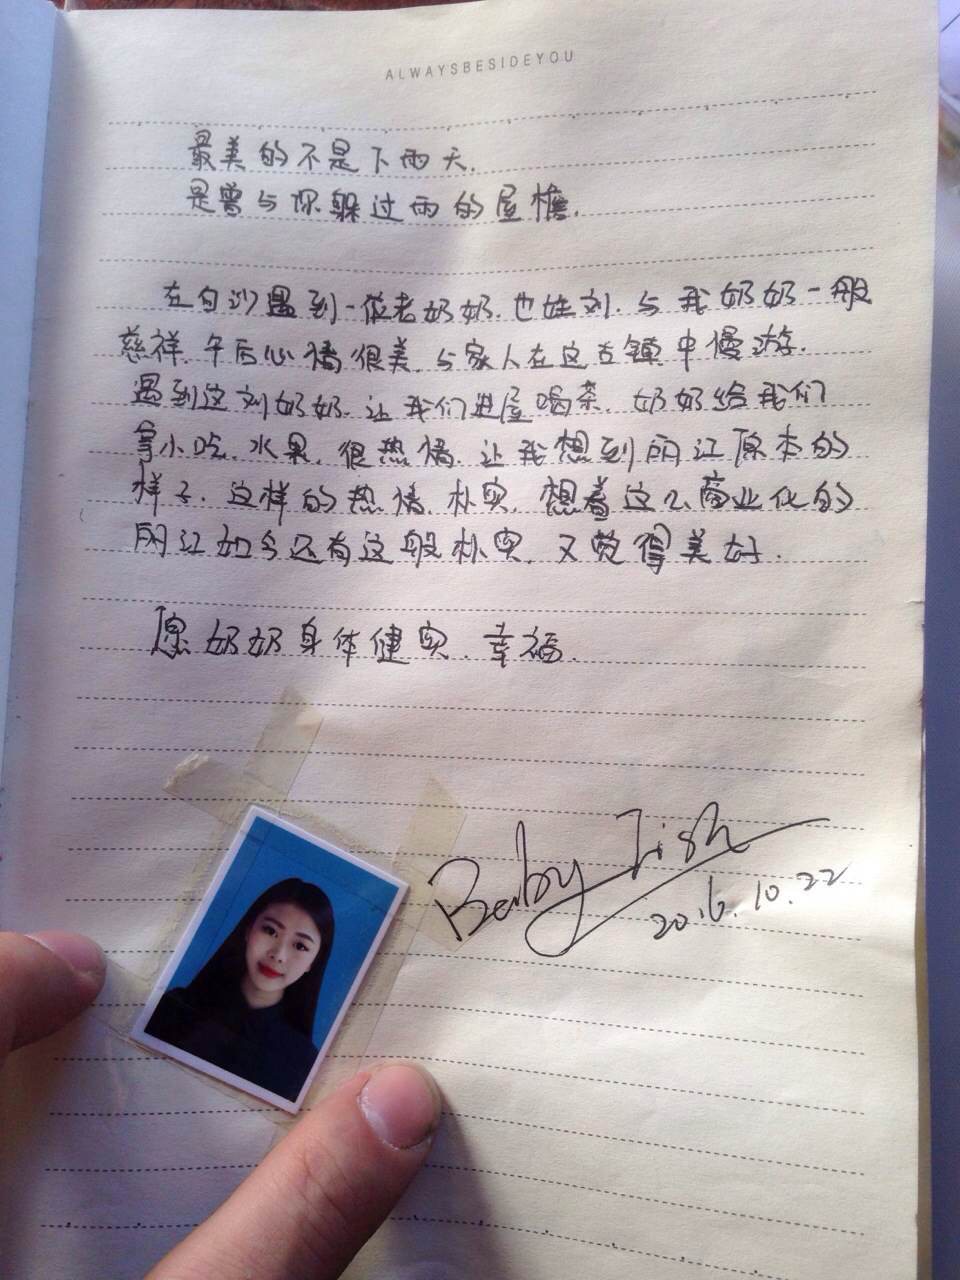 ALWAYSBESIDEYOU
最美的不是下雨天.
是曾与你躲过雨的屋檐.
在白沙遇到一位老奶奶.也姓刘.与我奶奶一般
慈祥.午后心情很美.与家人在这古镇中慢游.
遇到这刘奶奶.让我们进屋喝茶.奶奶给我们
拿小吃.水果.很热情.让我想到丽江原本的
样子.这样的热情.朴实.想着这么商业化的
丽江如今还有这般朴实.又觉得美好.
愿奶奶身体健实.幸福.
Baby Fish
2016.10.22